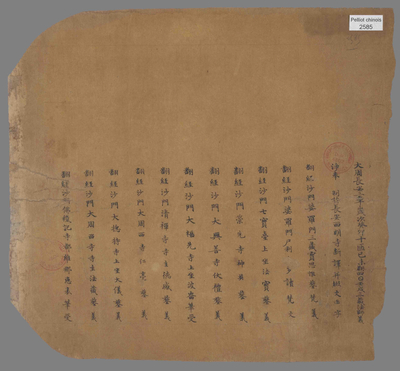 Pelliot chinois
2585
大周長安三年歲次癸卯十月己未朔四日壬戌三藏法師義
淨奉 制於長安西明寺新譯并綴文正字
翻經沙門婆羅門三藏寶思惟證梵義
翻經沙門婆羅門尸利末多讀梵文
翻經沙門七寶臺上坐法寶證義
翻經沙門荒先寺 證義
翻經沙門大興善寺伏禮證義
翻經沙門大福先寺上坐波崙筆受
翻經沙門清禪寺寺主德感證義
翻經沙門大周西寺仁亮證義
翻經沙門大總持寺上坐大儀證義
翻經沙門大周西寺寺主法藏證義
翻經沙門佛授記寺都維那惠表筆受